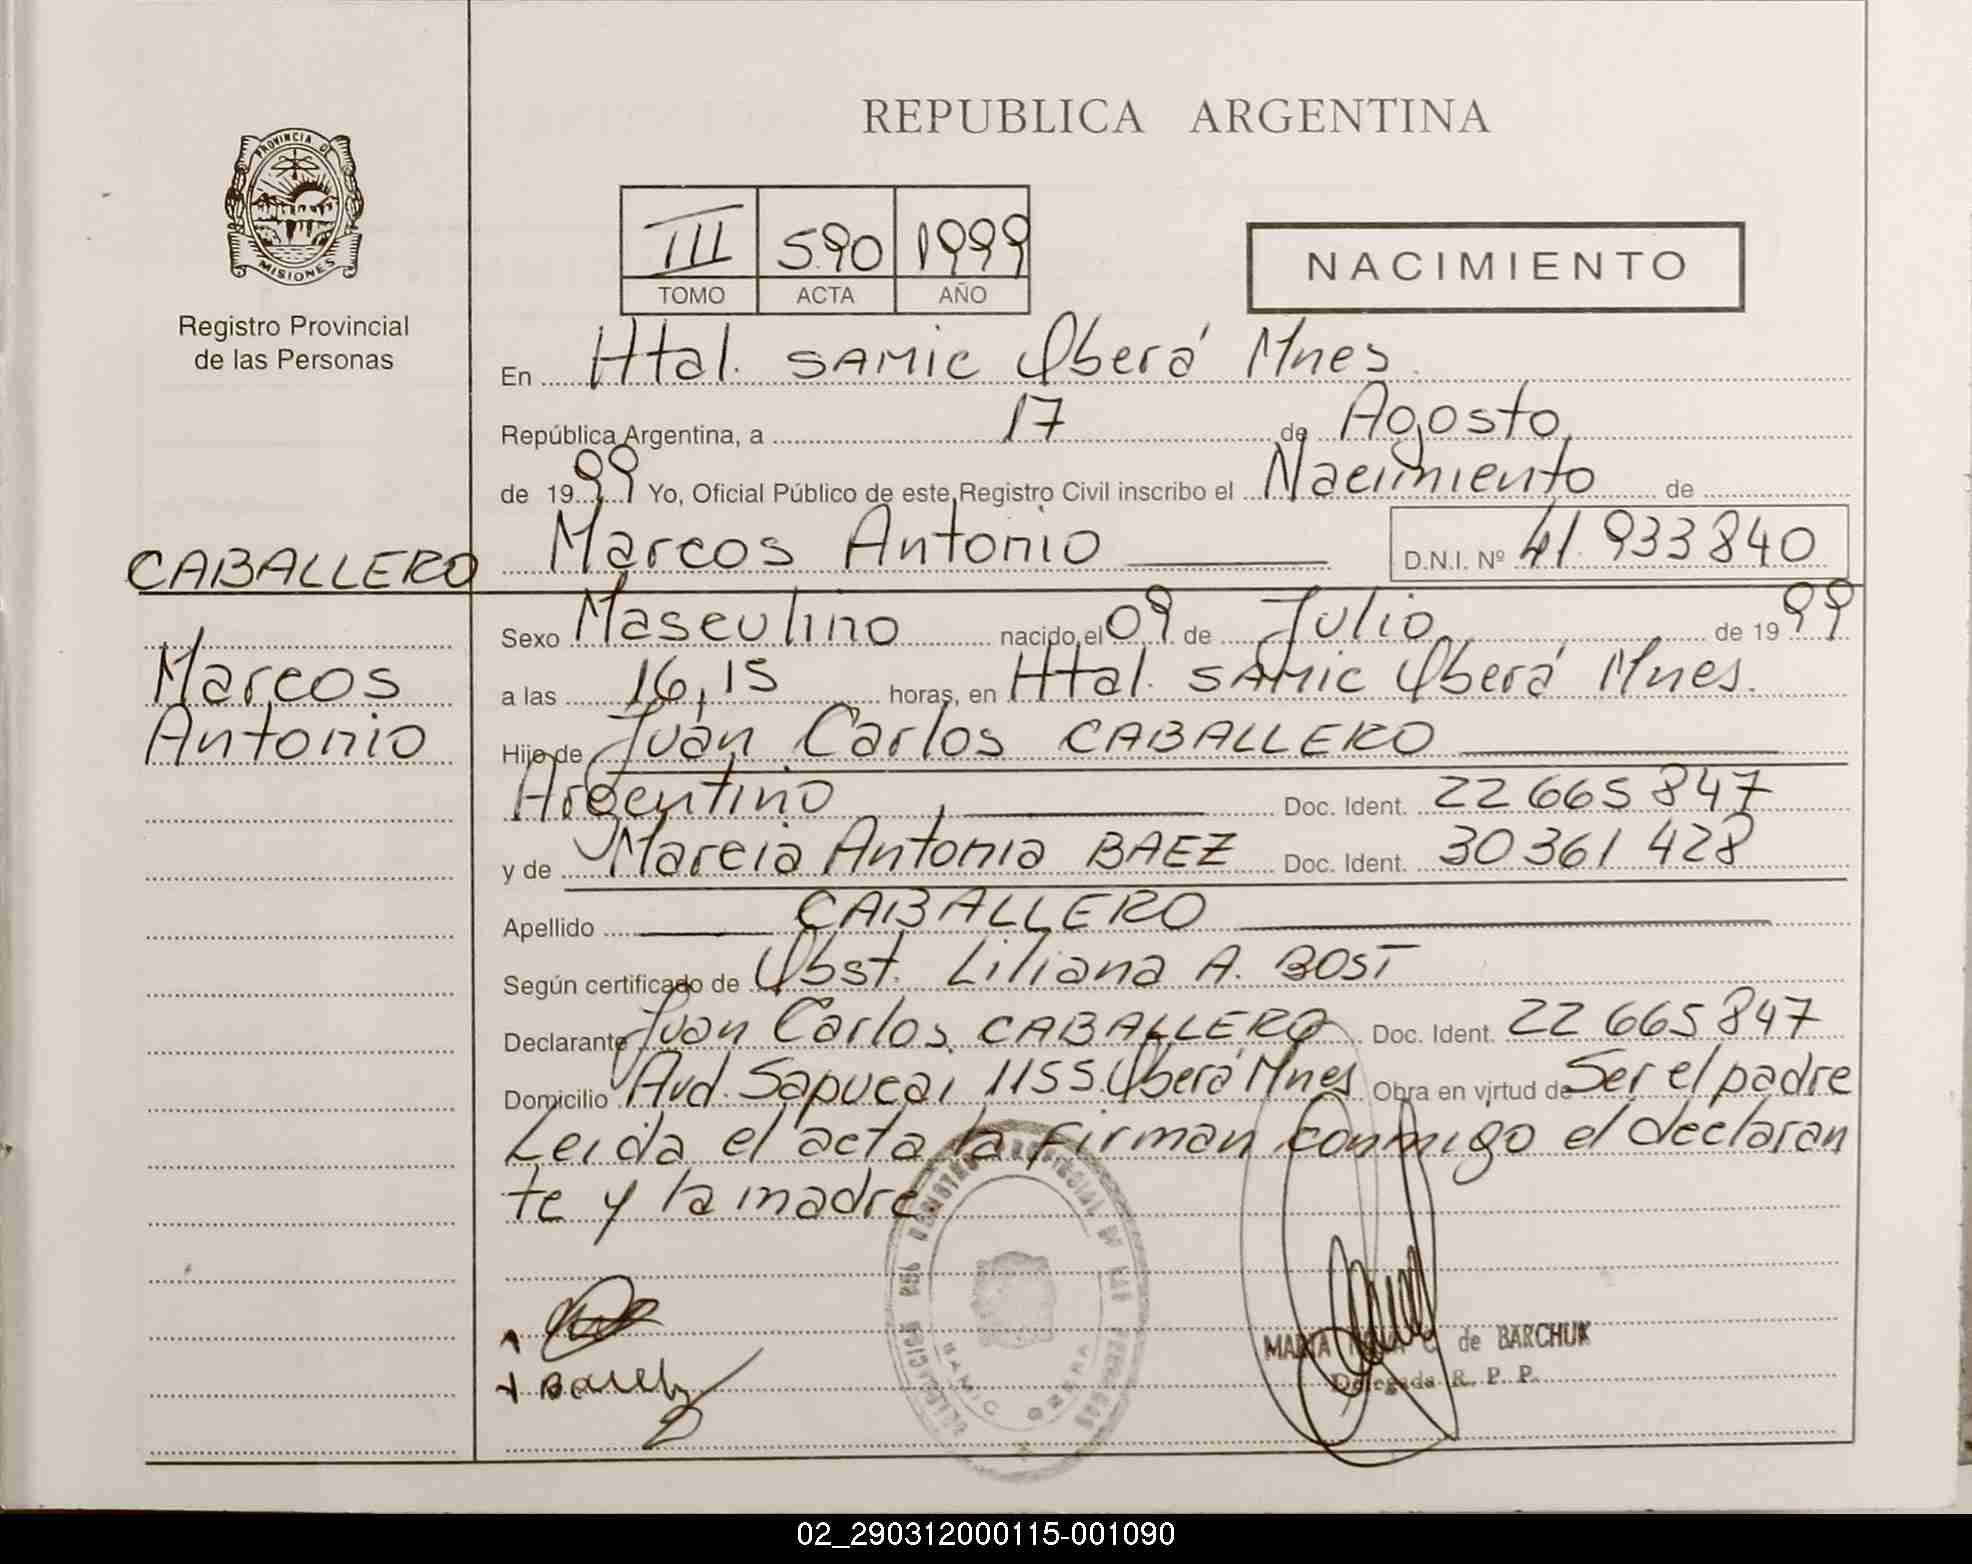 REPUBLICA ARGENTINA
PROVINCIA DE
MISIONES
Registro Provincial
de las Personas
III 590 1999
TOMO ACTA AÑO
NACIMIENTO
En Htal. SAMIC Oberá Mnes
República Argentina, a 17 de Agosto
de 1999 Yo, Oficial Público de este Registro Civil inscribo el Nacimiento de
CABALLERO
Marcos Antonio D.N.I. Nº 41.933840
Marcos
Antonio
Sexo Masculino nacido el 09 de Julio de 1999
a las 16,15 horas, en Htal. SAMIC Oberá Mnes.
Hijo de Juan Carlos CABALLERO
Argentino Doc. Ident. 22 665 847
y de Marcia Antonia BAEZ Doc. Ident. 30 361 428
Apellido CABALLERO
Según certificado de Obst. Liliana A. BOST
Declarante Juan Carlos CABALLERO Doc. Ident. 22 665 847
Domicilio Avd. Sapucai 1155 Oberá Mnes Obra en virtud de Ser el padre
Leida el acta la firman conmigo el declaran
te y la madre.
SAMIC OBERA
MARIA C. de BARCHUK
Delegada R. P. P.
02_290312000115-001090